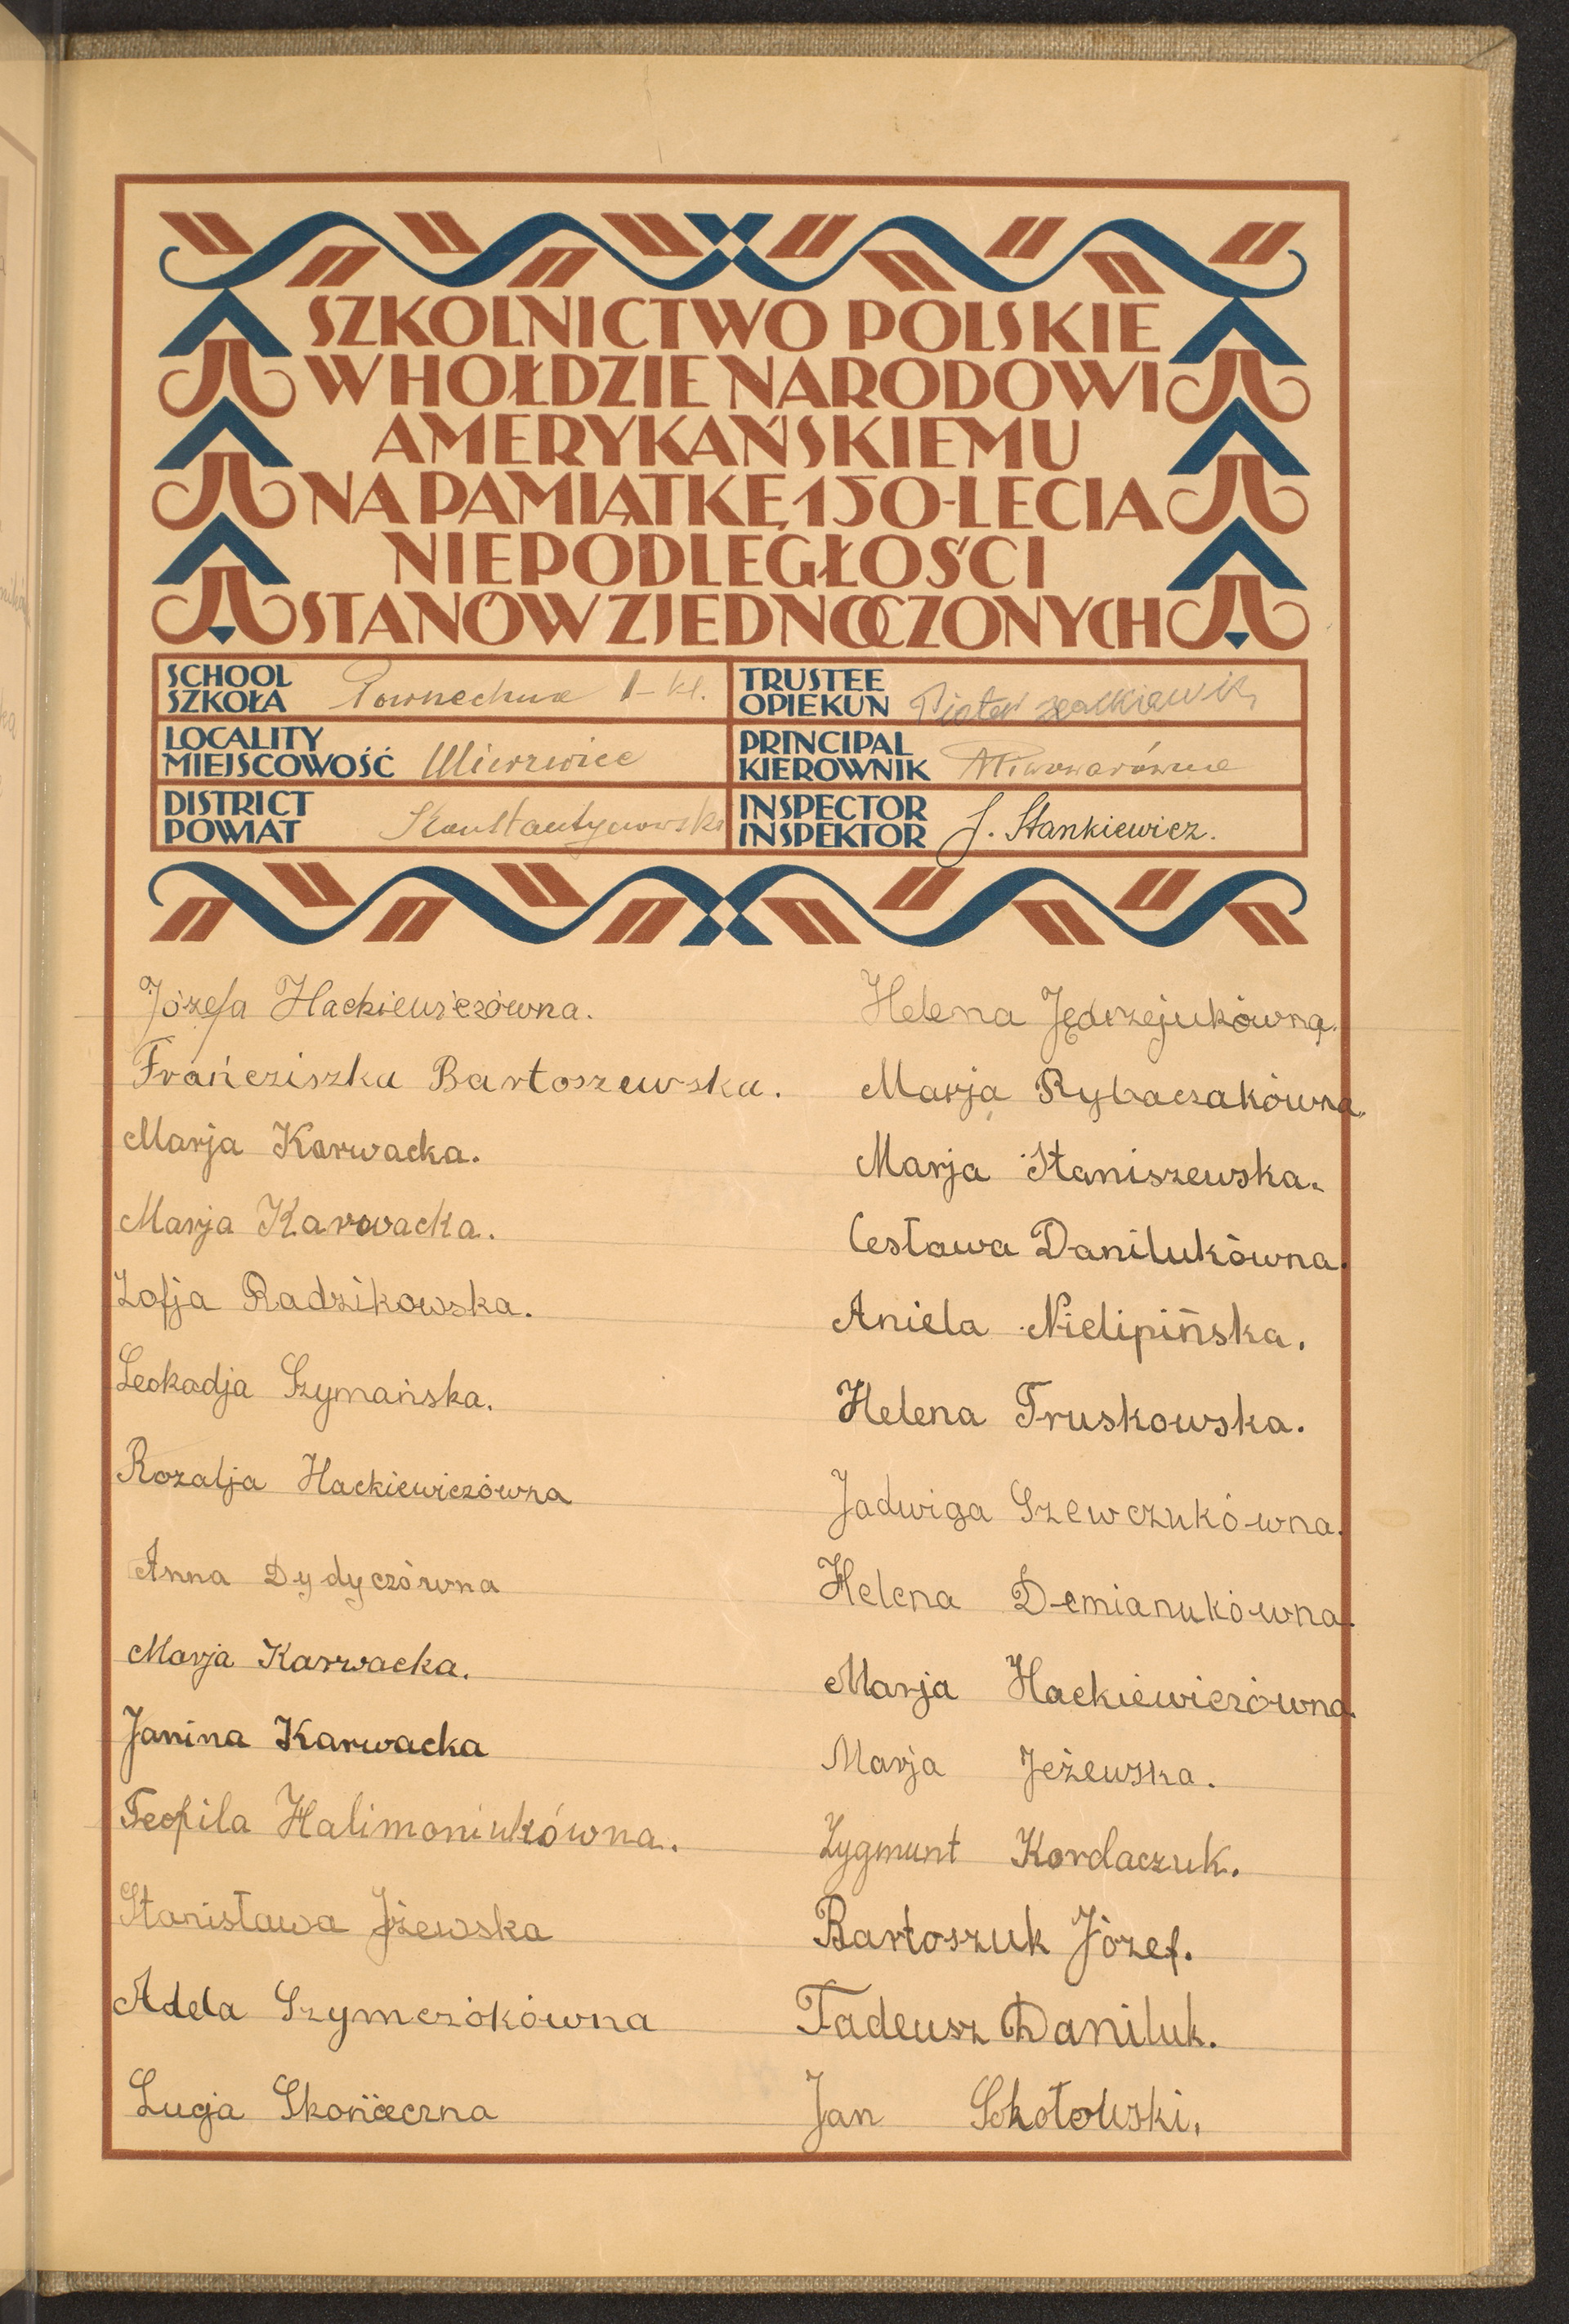 SZKOLNICTWO POLSKIE
W HOŁDZIE NARODOWI
AMERYKAŃSKIEMU
NA PAMIĄTKĘ 150-LECIA
NIEPODLEGŁOŚCI
STANÓW ZJEDNOCZONYCH
SCHOOL
SZKOŁA
Powszechna 1-kl.
TRUSTEE
OPIEKUN
Piotr
LOCALITY
MIEJSCOWOŚĆ
Mierzwice
PRINCIPAL
KIEROWNIK
DISTRICT
POWIAT
Konstantynowski
INSPECTOR
INSPEKTOR
J. Stankiewicz.
Józefa Hackiewiczówna.
Frańcziszka Bartoszewska.
Marja Karwacka.
Marja Karwacka.
Zofja Radzikowska.
Leokadja Szymańska.
Rozalja Hackiewiczówna
Anna Dydyczówna
Marja Karwacka.
Janina Karwacka
Teofila Halimoniukówna.
Stanisława Jeżewska
Adela Szymczókówna
Lucja
Helena Jędrzejukówna.
Marja Rybaczakówna.
Marja Staniszewska.
Cesława Danilukówna.
Aniela Nielipińska.
Helena Truskowska.
Jadwiga Szewczukówna.
Helena Demianukówna.
Marja Hackiewiczówna.
Marja Jeżewska.
Zygmunt Kordaczuk.
Bartoszuk Józef.
Tadeusz Daniluk.
Jan Sokołowski.